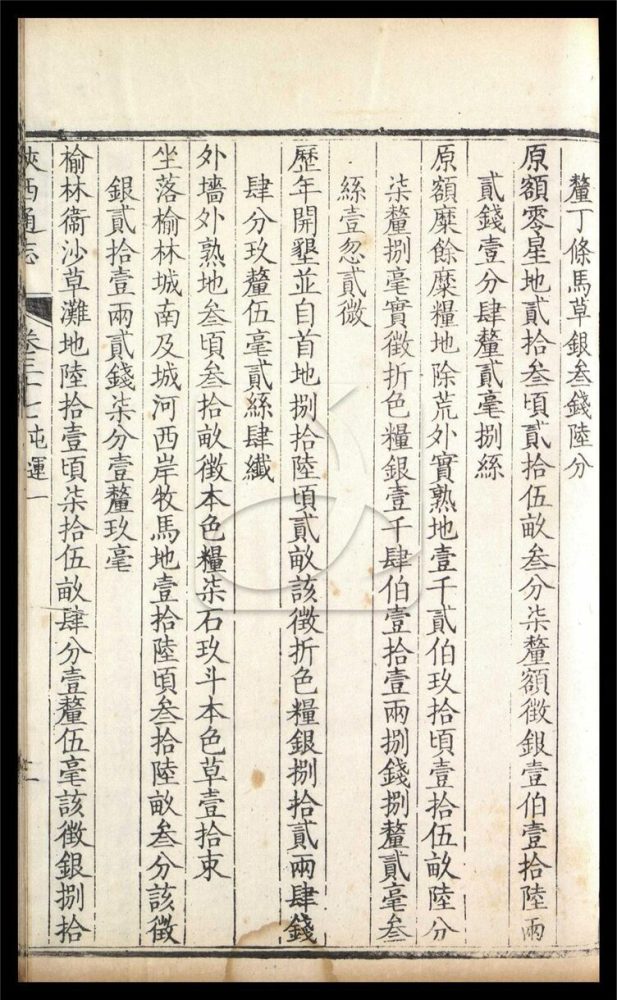 釐丁條馬草銀叁錢陸分
原額零星地貳拾叁頃貳拾伍畝叁分柒釐額徵銀壹伯壹拾陸兩
貳錢壹分肆釐貳毫捌絲
原額糜餘糜糧地除荒外實熟地壹千貳伯玖拾頃壹拾伍畝陸分
柒釐捌毫實徵折色糧銀壹千肆伯壹拾壹兩捌錢捌釐貳毫叁
絲壹忽貳微
歷年開墾並自首地捌拾陸頃貳畝該徵折色糧銀捌拾貳兩肆錢
肆分玖釐伍毫貳絲肆纖
外墻外熟地叁頃叁拾畝徵本色糧柒石玖斗本色草壹拾束
坐落榆林城南及城河西岸牧馬地壹拾陸頃叁拾陸畝叁分該徵
銀貳拾壹兩貳錢柒分壹釐玖毫
榆林衞沙草灘地陸拾壹頃柒拾伍畝肆分壹釐伍毫該徵銀捌拾
陝西通志
卷三十七 屯運一